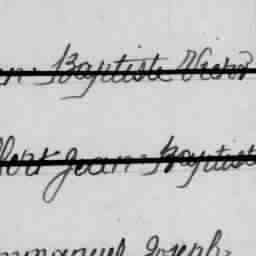 Baptiste Victor
Jean Baptist
mmanuel Joseph